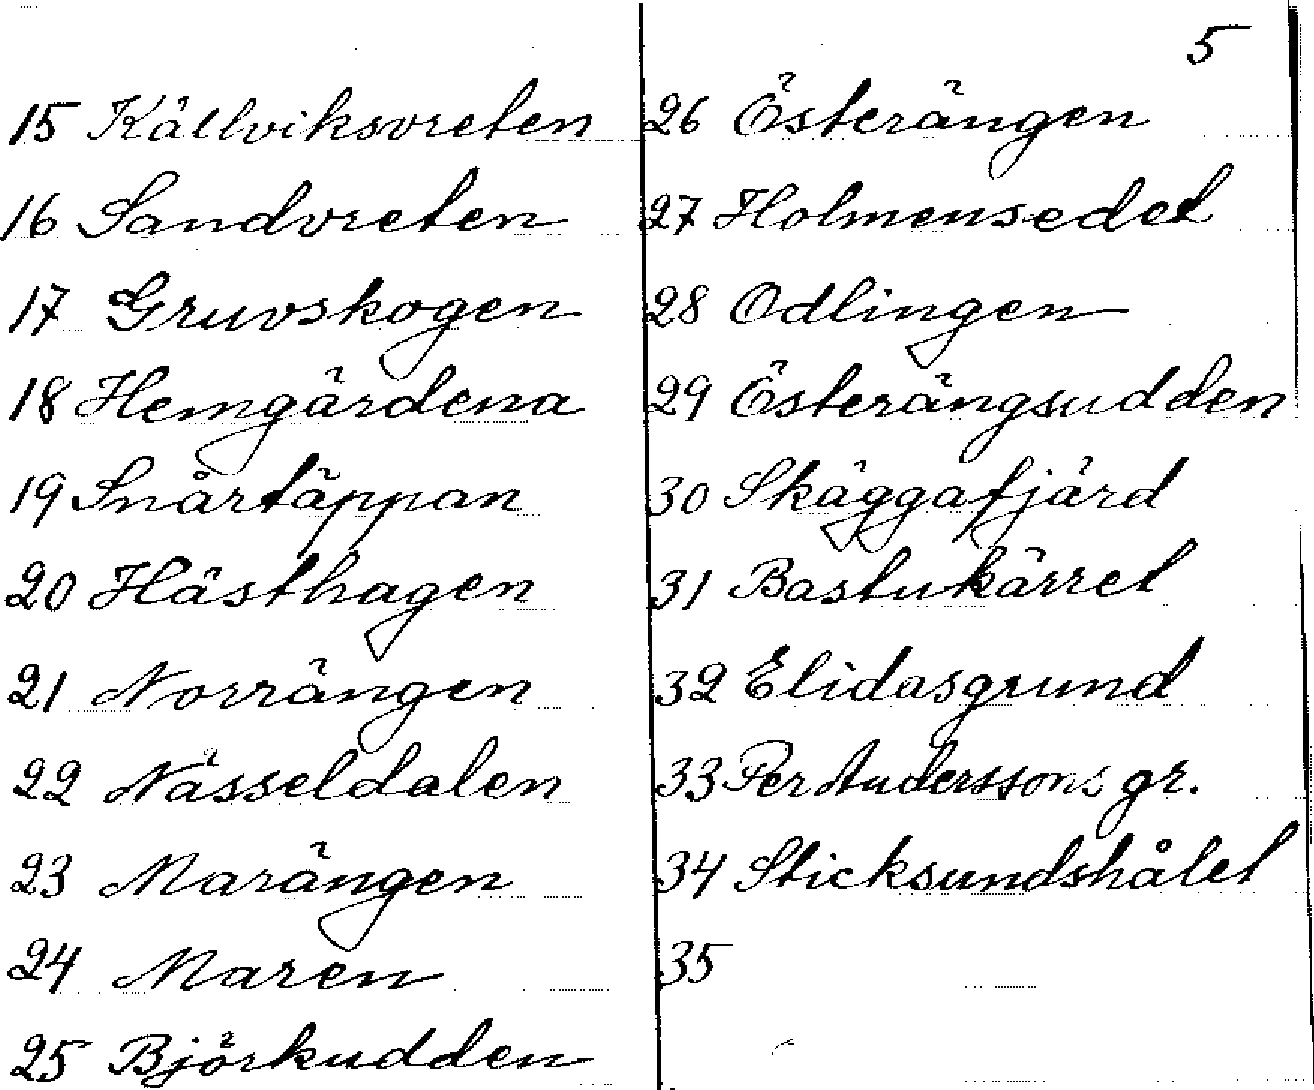 5
15 Källviksvreten
16 Sandvreten
17 Gruvskogen
18 Hemgärdena
19 Snårtäppan
20 Hästhagen
21 Norrängen
22 Nässeldalen
23 Marängen
24 Maren
25 Björkudden
26 Österängen
27 Holmensedet
28 Odlingen
29 Österängsudden
30 Skäggafjärd
31 Bastukärret
32 Elidasgrund
33 Per Anderssons gr.
34 Sticksundshålet
35